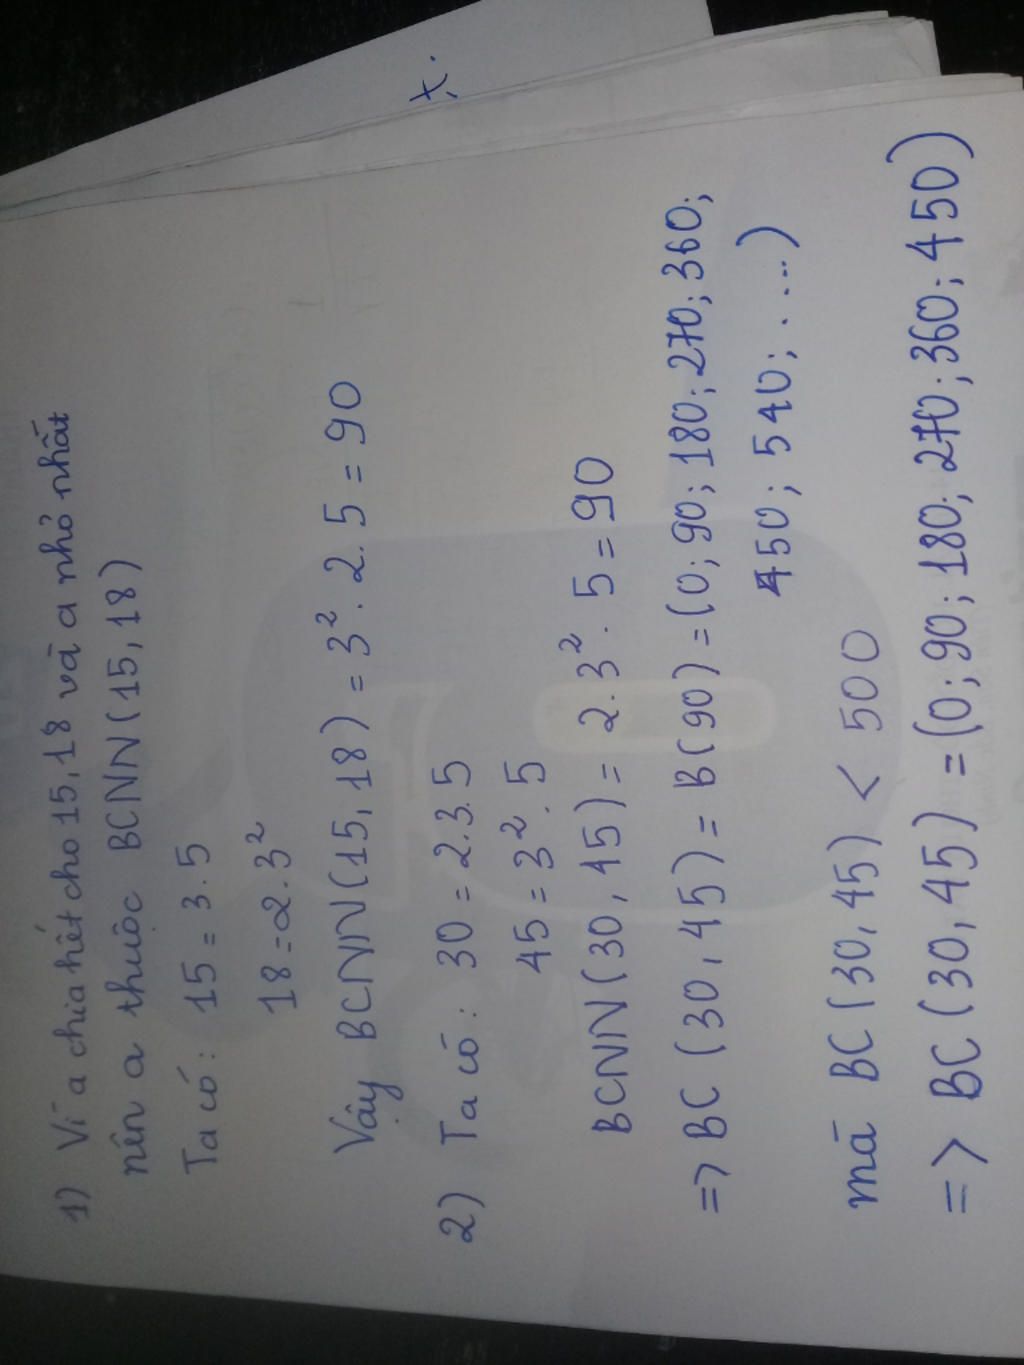 1) Vì a chia hết cho 15, 18 và a nhỏ nhất
nên a thuộc BCNN(15, 18)
Ta có: 15 = 3.5
18 = 2.3²
Vậy BCNN(15, 18) = 3².2.5 = 90
2) Ta có: 30 = 2.3.5
45 = 3².5
BCNN(30, 45) = 2.3².5 = 90
=> BC (30, 45) = B(90) = (0; 90; 180; 270; 360;
450; 540; ....)
mà BC (30, 45) < 500
=> BC (30, 45) = (0; 90; 180; 270; 360; 450)